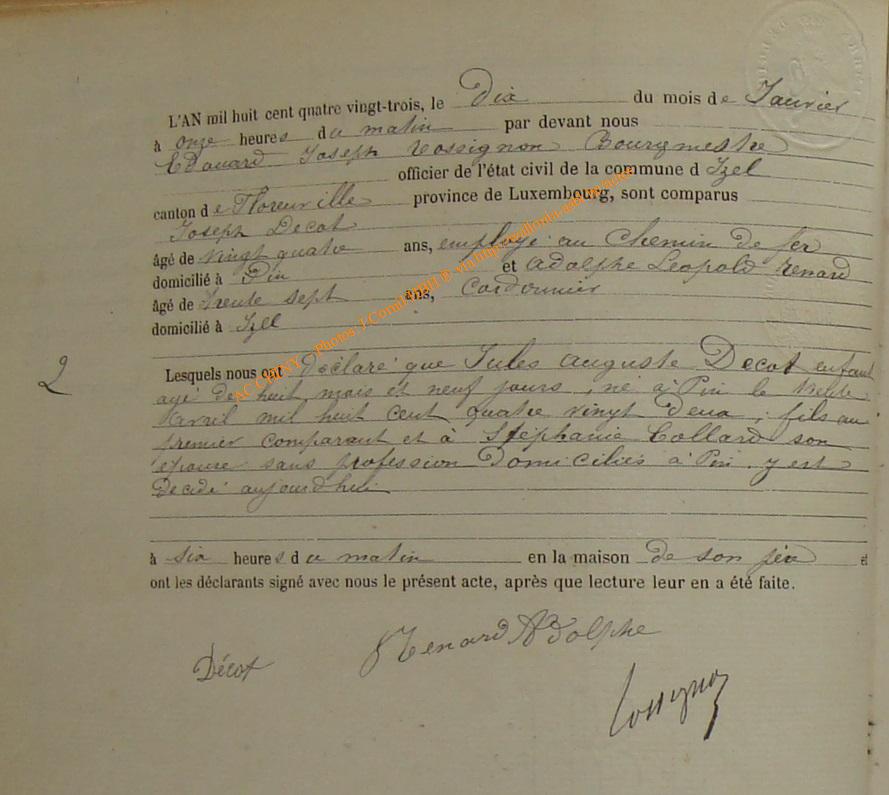 L'AN mil huit cent quatre vingt-trois, le Dix du mois de Janvier
à onze heures du matin par devant nous
Edouard Joseph Rossignon Bourgmestre
officier de l'état civil de la commune d Izel
canton de Florenville province de Luxembourg, sont comparus
Joseph Decot
âgé de vingt quatre ans, employé au Chemin de fer
domicilié à Pin et Adolphe Leopold Renard
âgé de trente sept ans, Cordonnier
domicilié à Izel
2
Lesquels nous ont Déclaré que Jules Auguste Decot enfant
agé de huit mois et neuf jours, né à Pin le trente
avril mil huit cent quatre vingt Deux, fils au
premier comparant et à Stéphanie Collard son
épouse sans profession Domiciliés à Pin y est
Décédé aujourd'hui
à six heures du matin en la maison de son père et
ont les déclarants signé avec nous le présent acte, après que lecture leur en a été faite.
Décot Renard Adolphe
Rossignon